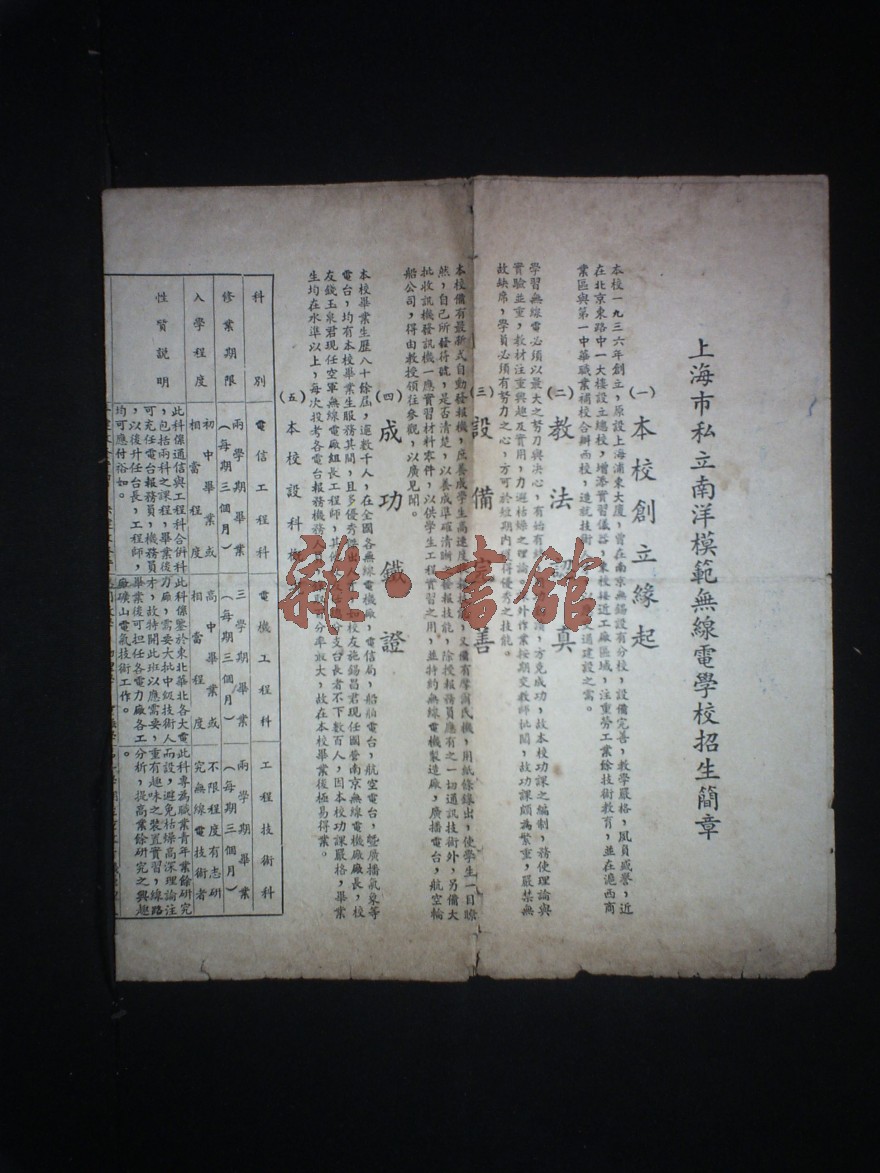 上海市私立南洋模範無線電學校招生簡章
(一)本校創立緣起
本校一九三六年創立，原設上海浦東大廈，曾在南京無錫設有分校，設備完善，教學嚴格，夙負盛譽，近
在北京東路中一大樓設立總校，增添實習儀器，東校接近工廠區域，注重勞工業餘技術教育，並在滬西商
業區與第一中華職業補校合辦西校，造就技術
交通建設之需。
(二)教法認真
學習無線電必須以最大之努力與決心，有始有終
方克成功，故本校功課之編制，務使理論與
實驗並重，教材注重興趣及實用，力避枯燥之理論
外作業按期交教師批閱，故功課頗為繁重，嚴禁無
故缺席，學員必須有努力之心，方可於短期內獲得優秀之技能。
(三)設備完善
本校備有最新式自動發報機，庶養成學生高速度
又備有摩爾氏機，用紙條錄出，使學生一目瞭
然，自己所發符號，是否清楚，以養成準確清晰之發報技能，除授報務員應有之一切通訊技術外，另備大
批收訊機發訊機一應實習材料零件，以供學生工程實習之用，並特約無線電機製造廠，廣播電台，航空輪
船公司，得由教授領往參觀，以廣見聞。
(四)成功鐵證
本校畢業生歷八十餘屆，逾數千人，在全國各無線電機廠，電信局，船舶電台，航空電台，曁廣播氣象等
電台，均有本校畢業生服務其間，且多優秀傑出人才，如校友施錫昌君現任國營南京無線電機廠廠長，校
友錢玉泉君現任空軍無線電廠組長工程師，其他
分支台長者不下數百人，因本校功課嚴格，畢業
生均在水準以上，每次投考各電台報務機務人員，
百分率最大，故在本校畢業後極易得業。
(五)本校設科概
科別 電信工程科 電機工程科 工程技術科
修業期限 兩學期畢業(每期三個月) 三學期畢業(每期三個月) 兩學期畢業(每期三個月)
入學程度 初中畢業或相當程度 高中畢業或相當程度 不限程度有志研究無線電技術者
性質說明
此科係通信與工程科合併科
，包括兩科之課程，畢業後
可充任電台報務員，機務員
，以後升任台長，工程師，
均可應付裕如。
此科係鑒於東北華北各大電
力廠，需要大批中級技術人
才，故特開此班以應需要，
畢業後可担任各電力廠各工
廠礦山電氣技術工作。
此科專為職業青年業餘研究
而設，避免枯燥高深理論注
重有趣味之裝置實習，線路
分析，提高業餘研究之興趣
。
雜·書館